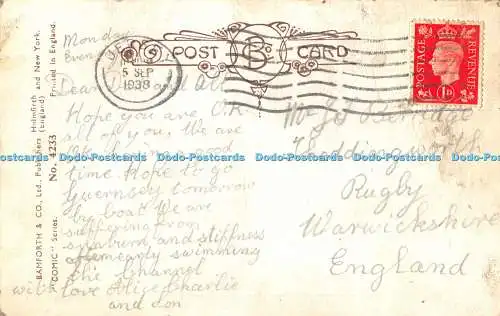 BAMFORTH & CO., Ltd., Publishers (England) Holmfirth and New York.
"COMIC" Series. No. 4233 Printed in England.
POST CARD
5 SEP
1938
POSTAGE
REVENUE
1D
Monday
Dear
Hope you are O.K.
all of you. We are
good
time. Hope to go
Guernsey tomorrow
by boat. We are
suffering from
sunburn and stiffness
swimming
the Channel
with love Alice Charlie
and Don
Rugby
Warwickshire
England
Dodo-Postcards Dodo-Postcards Dodo-Postcards Dodo-Postcards Dodo-Postcards Dodo-Postcards